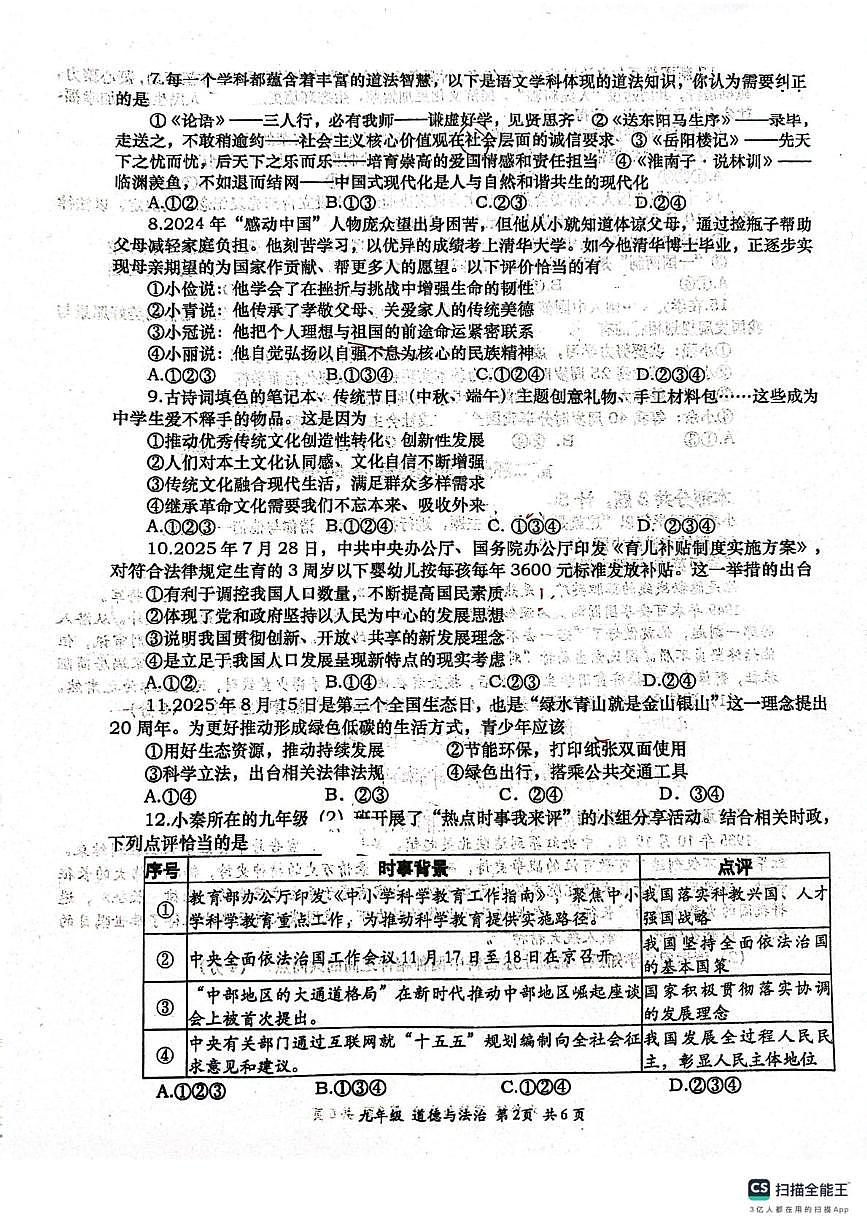 7.每一个学科都蕴含着丰富的道法智慧，以下是语文学科体现的道法知识，你认为需要纠正
的是
①《论语》——三人行，必有我师——谦虚好学，见贤思齐 ②《送东阳马生序》——录毕，
走送之，不敢稍逾约——社会主义核心价值观在社会层面的诚信要求 ③《岳阳楼记》——先天
下之忧而忧，后天下之乐而乐——培育崇高的爱国情感和责任担当 ④《淮南子·说林训》——
临渊羡鱼，不如退而结网——中国式现代化是人与自然和谐共生的现代化
A.①② B.①③ C.②③ D.②④
8.2024 年“感动中国”人物庞众望出身困苦，但他从小就知道体谅父母，通过捡瓶子帮助
父母减轻家庭负担。他刻苦学习，以优异的成绩考上清华大学。如今他清华博士毕业，正逐步实
现母亲期望的为国家作贡献、帮更多人的愿望。以下评价恰当的有
①小俭说：他学会了在挫折与挑战中增强生命的韧性
②小青说：他传承了孝敬父母、关爱家人的传统美德
③小冠说：他把个人理想与祖国的前途命运紧密联系
④小丽说：他自觉弘扬以自强不息为核心的民族精神
A.①②③ B.①③④ C.①②④ D.②③④
9.古诗词填色的笔记本、传统节日（中秋、端午）主题创意礼物、手工材料包……这些成为
中学生爱不释手的物品。这是因为
①推动优秀传统文化创造性转化、创新性发展
②人们对本土文化认同感、文化自信不断增强
③传统文化融合现代生活，满足群众多样需求
④继承革命文化需要我们不忘本来、吸收外来
A.①②③ B.①②④ C. ①③④ D. ②③④
10.2025 年 7 月 28 日，中共中央办公厅、国务院办公厅印发《育儿补贴制度实施方案》，
对符合法律规定生育的 3 周岁以下婴幼儿按每孩每年 3600 元标准发放补贴。这一举措的出台
①有利于调控我国人口数量，不断提高国民素质
②体现了党和政府坚持以人民为中心的发展思想
③说明我国贯彻创新、开放、共享的新发展理念
④是立足于我国人口发展呈现新特点的现实考虑
A.①② B.①④ C.②③ D.②④
11.2025 年 8 月 15 日是第三个全国生态日，也是“绿水青山就是金山银山”这一理念提出
20 周年。为更好推动形成绿色低碳的生活方式，青少年应该
①用好生态资源，推动持续发展 ②节能环保，打印纸张双面使用
③科学立法，出台相关法律法规 ④绿色出行，搭乘公共交通工具
A.①④ B. ②③ C. ②④ D. ③④
12.小秦所在的九年级（2）班开展了“热点时事我来评”的小组分享活动。结合相关时政，
下列点评恰当的是
序号 时事背景 点评
① 教育部办公厅印发《中小学科学教育工作指南》，聚焦中小 我国落实科教兴国、人才
学科学教育重点工作，为推动科学教育提供实施路径。 强国战略
② 中央全面依法治国工作会议11月17日至18日在京召开 我国坚持全面依法治国
的基本国策
③ “中部地区的大通道格局”在新时代推动中部地区崛起座谈 国家积极贯彻落实协调
会上被首次提出。 的发展理念
④ 中央有关部门通过互联网就“十五五”规划编制向全社会征 我国发展全过程人民民
求意见和建议。 主，彰显人民主体地位
A.①②③ B.①③④ C.①②④ D.②③④
九年级 道德与法治 第2页 共6页
CS 扫描全能王
3亿人都在用的扫描App